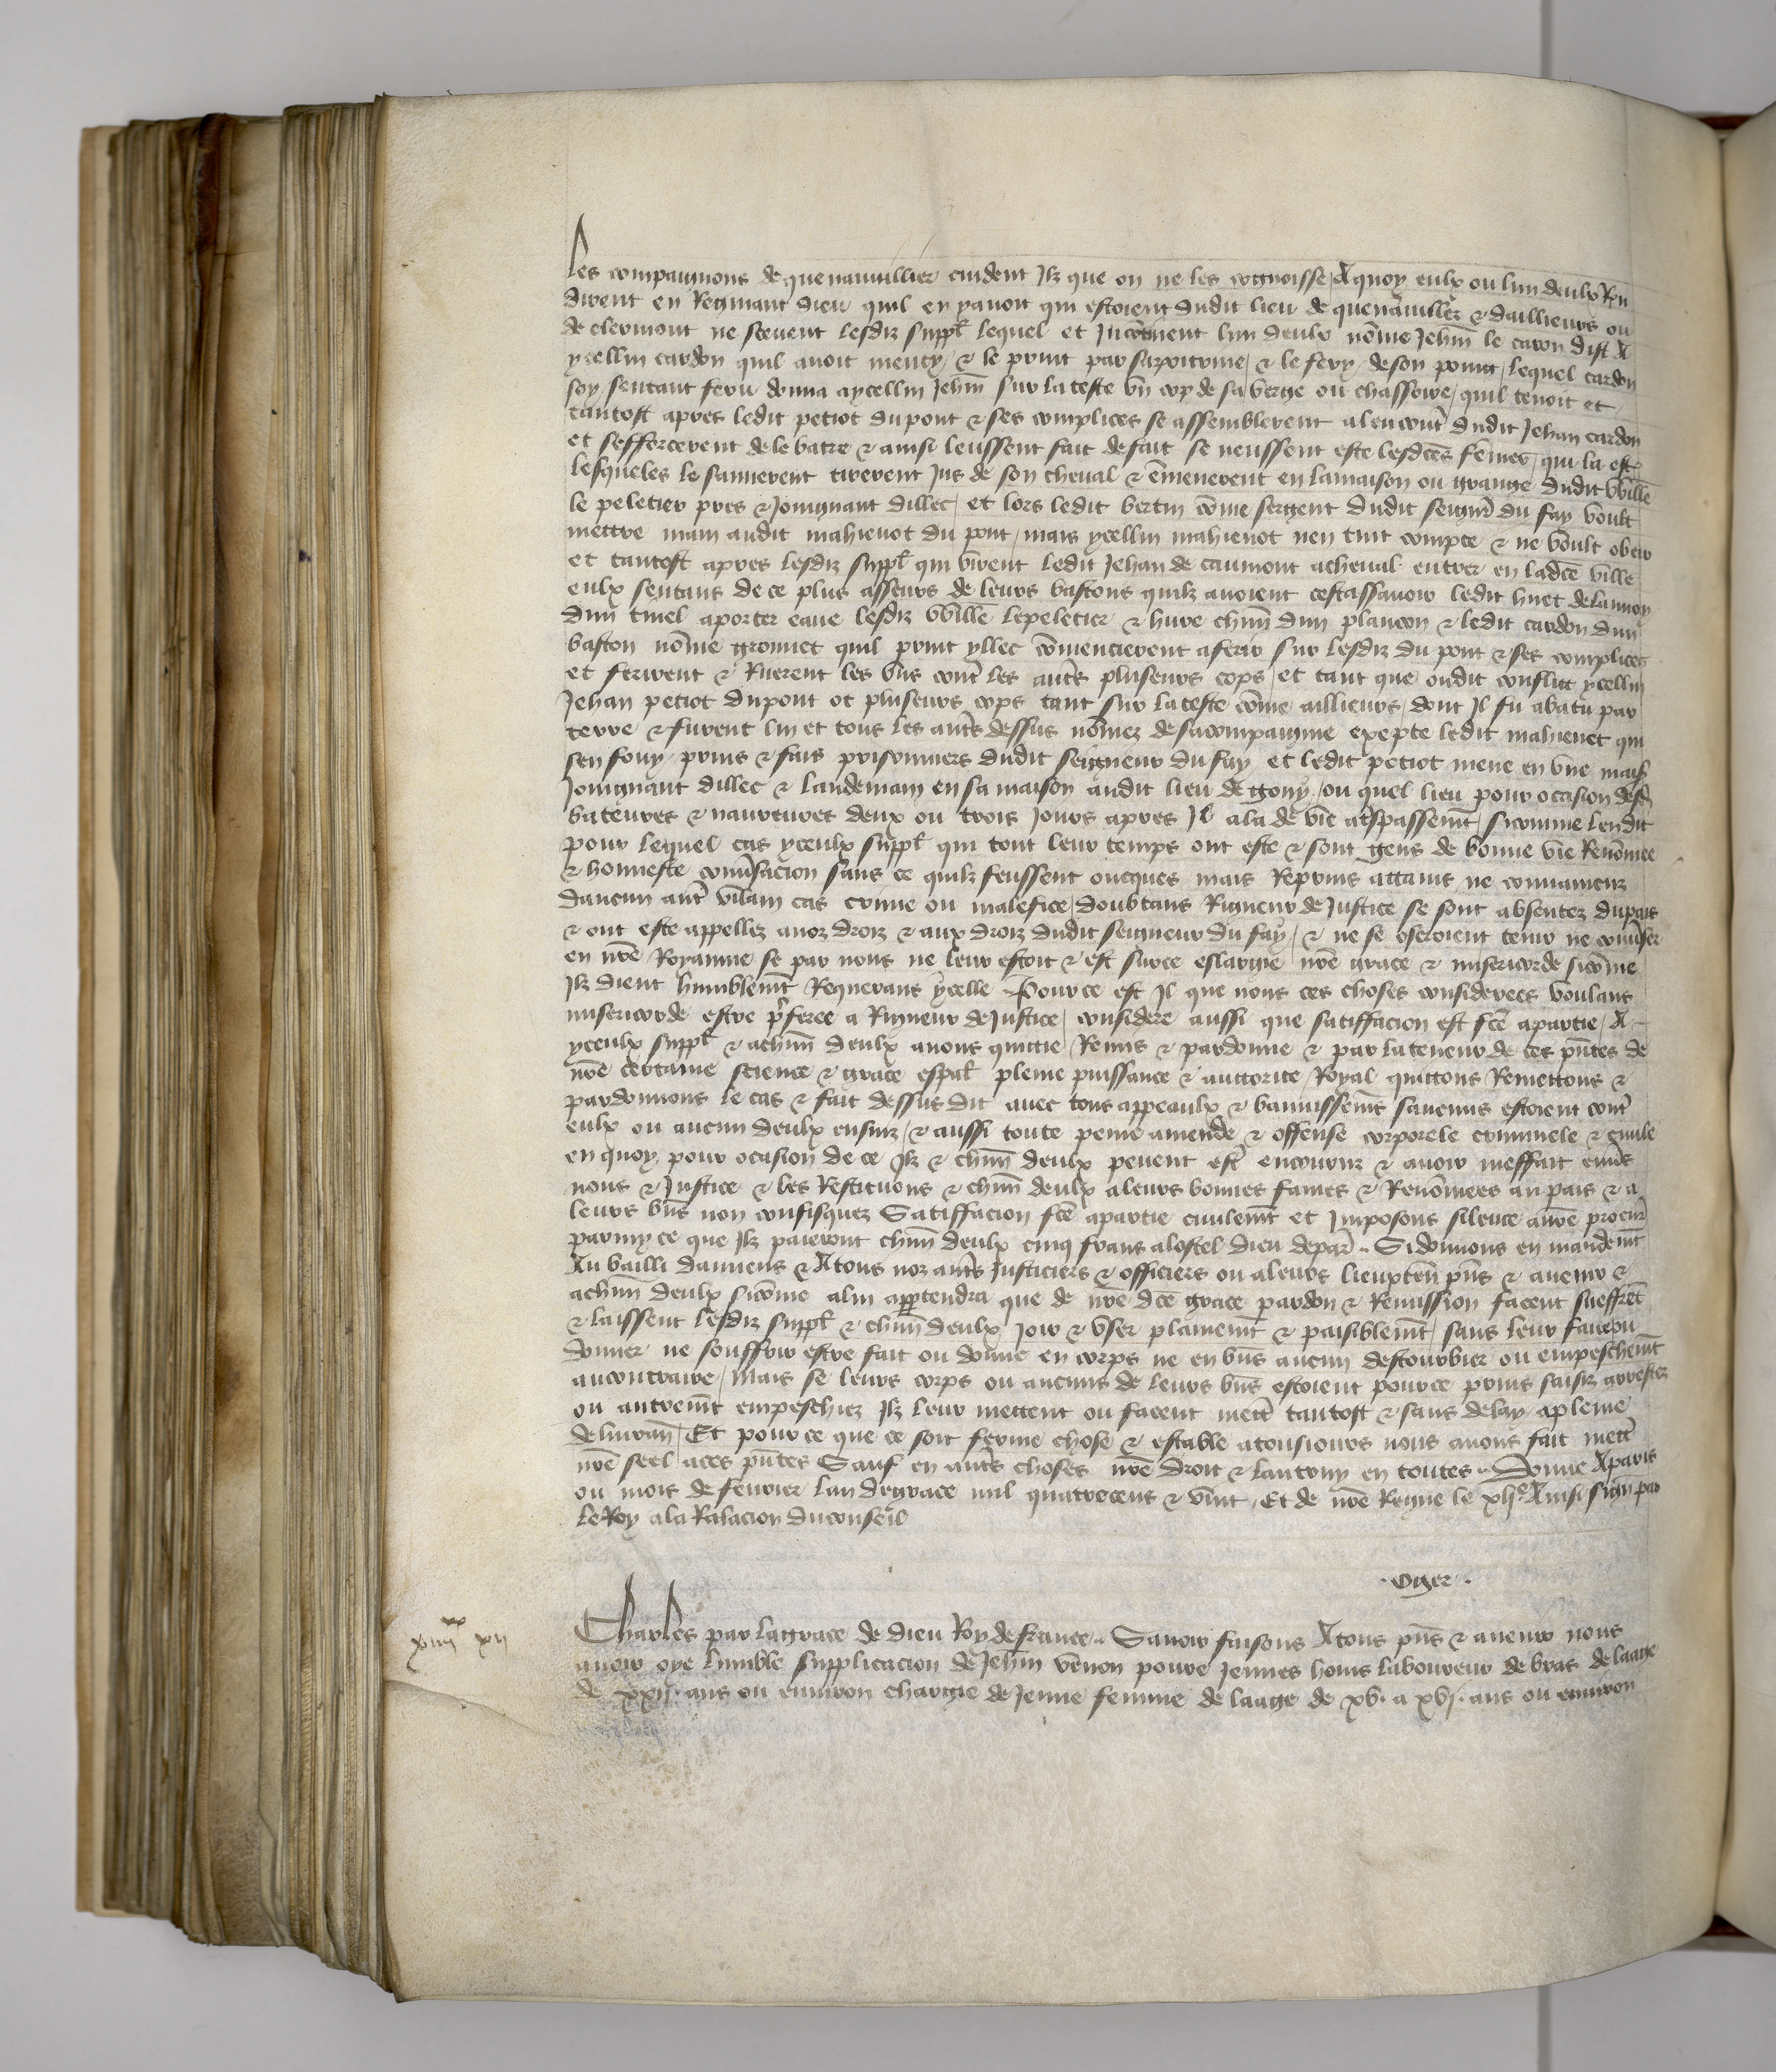 les compaignons de quenauviller cuident Ilz que on ne les cognoisse A quoy eulx ou lun deulx
dirent en Regniant dieu quil en yavoit qui estoient dudit lieu de quenauviller & daillieurs ou
de clermont ne scevent lesdiz suppl lequel et Incontinent lun deulx nōme Jehan le caron dist A
ycellui cardon quil avoit menty & le print par sa poitrine & le fery de son poing lequel cardon
soy sentant feru donna aycellui Jehan sur la teste un cop de sa verge ou chassoire quil tenoit et
tantost apres ledit petiot dupont & ses complices se assemblerent alencontr dudit Jehan cardon
et sefforcerent de le batre & ainsi leussent fait de fait se neussent este lesdces fēmes qui la est
lesqueles le sauverent tirerent Jus de son cheval & ēmenerent en lamaison ou grange dudit Willē
le peletier pres & Joingnant dillec et lors ledit bertin cōme sergent dudit seignr du fay voult
mettre main audit mahieuot du pont mais ycellui mahieuot nen tint compte & ne voult obeir
et tantost apres lesdiz suppl qui virent ledit Jehan de caumont acheval entrer en ladce ville
eulx sentans de ce plus asseurs de leurs bastons quilz avoient cestassavoir ledit huet delannoy
dun tinel aporter eaue lesdiz Willē lepeletier & hure chūn dun plancon & ledit cardon dun
baston nōme gronnet quil print yllec cōmencierent aferir sur lesdiz du pont & ses complices
et ferirent & Ruerent les uns contr les autrs pluseurs cops et tant que oudit conflict ycellui
Jehan petiot dupont ot pluseurs cops tant sur lateste cōme aillieurs dont Il fu abatu par
terre & furent lui et tous les autrs dessus nōmez de sacompaignie exepte ledit mahieuet qui
sen fouy prins & fais prisonniers dudit seigneur du fay et ledit petiot mene en une mais
Joingnant dillec & landemain en sa maison audit lieu de gouy ou quel lieu pour ocasion desd
bateures & navreures deux ou trois Jours apres Il ala de vie atrspassemt sicomme lendit
pour lequel cas yceulx suppl qui tout leur temps ont este & sont gens de bonne vie Renōmee
& honneste convsacion sans ce quilz feussent oncques mais Reprins attains ne convaincuz
daucun autr vilain cas crime ou malefice doubtans Rigueur de Justice se sont absentez dupais
& ont este appellez anoz droiz & aux droiz dudit seigneur du fay & ne se oseroient tenir ne convser
en nrē Royaume se par nous ne leur estoit & est surce eslargie nrē grace & misericorde sicōme
Ilz dient humblemt Requerans ycelle Pource est Il que nous ces choses considerees voulans
misericorde estre pferee a Rigueur de Justice considere aussi que satiffacion est fcē apartie A
yceulx suppl & achūn deulx avons quictie Remis & pardonne & par lateneur de ces pntes de
nrē certaine science & grace espal pleine puissance & auctorite Royal quittons Remettons &
pardonnons le cas & fait dessus dit avec tous appeaulx & bannissemt saucuns estoient contr
eulx ou aucun deulx ensuiz & aussi toute peine amende & offense corporele criminele & civile
en quoy pour ocasion de ce Ilz & chūn deulx pevent estr encouruz & avoir meffait envs
nous & Justice & les Restituons & chūn deulx aleurs bonnes fames & Renōmees au pais & a
leurs bns non confisquez Satiffacion fcē apartie civilemt et Imposons silence anrē procur
parmy ce que Ilz paieront chūn deulx cinq frans alostel dieu depar Sidonnons en mandemt
Au bailli damiens & Atous noz autrs Justiciers & officiers ou aleurs lieuxten pns & avenir &
achūn deulx sicōme alui appartendra que de nrē dce grace pardon & Remission facent sueffrēt
& laissent lesdiz suppl & chūn deulx Joir & user plainemt & paisiblemt sans leur faire ou
donner ne souffrir estre fait ou donne en corps ne en bns aucun destourbier ou empeschemt
aucontraire mais se leurs corps ou aucuns de leurs bns estoient pource prins saisiz arrestez
ou autremt empeschiez Ilz leur mettent ou facent mettr tantost & sans delay apleine
delivran Et pour ce que ce soit ferme chose & estable atousiours nous avons fait mettr
nrē seel aces pntes Sauf en autrs choses nrē droit & lautruy en toutes Donne Aparis
ou mois de fevrier lan degrace mil quatrecens & vint Et de nrē Regne le xlje Ainsi signe par
leRoy ala Relacion duconseil
Oger
xx
xiiii xii
Charles par lagrace de dieu Roy de france Savoir faisons Atous pns & avenir nous
avoir oye lumble supplicacion de Jehan venon povre Jennes homs laboureur de bras de laage
de xxij ans ou environ chargie de Jenne femme de laage de xv a xvj ans ou environ